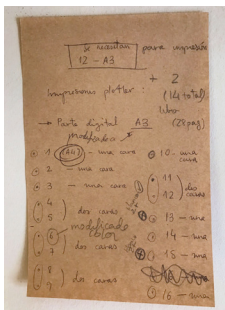 Se necesitan para impresión
12 - A3
+ 2
Impresiones plotter: (14 total)
libro
→ Parte digital A3 (28 pag)
modificada
1 (A4) - una cara
2 - una cara
3 - una cara
4
5 ) dos caras
modificado color
6
7 ) dos caras
8
9 ) dos caras
10 - una cara
11
12 ) dos caras
13 - una
14 - una
15 - una
16 - una